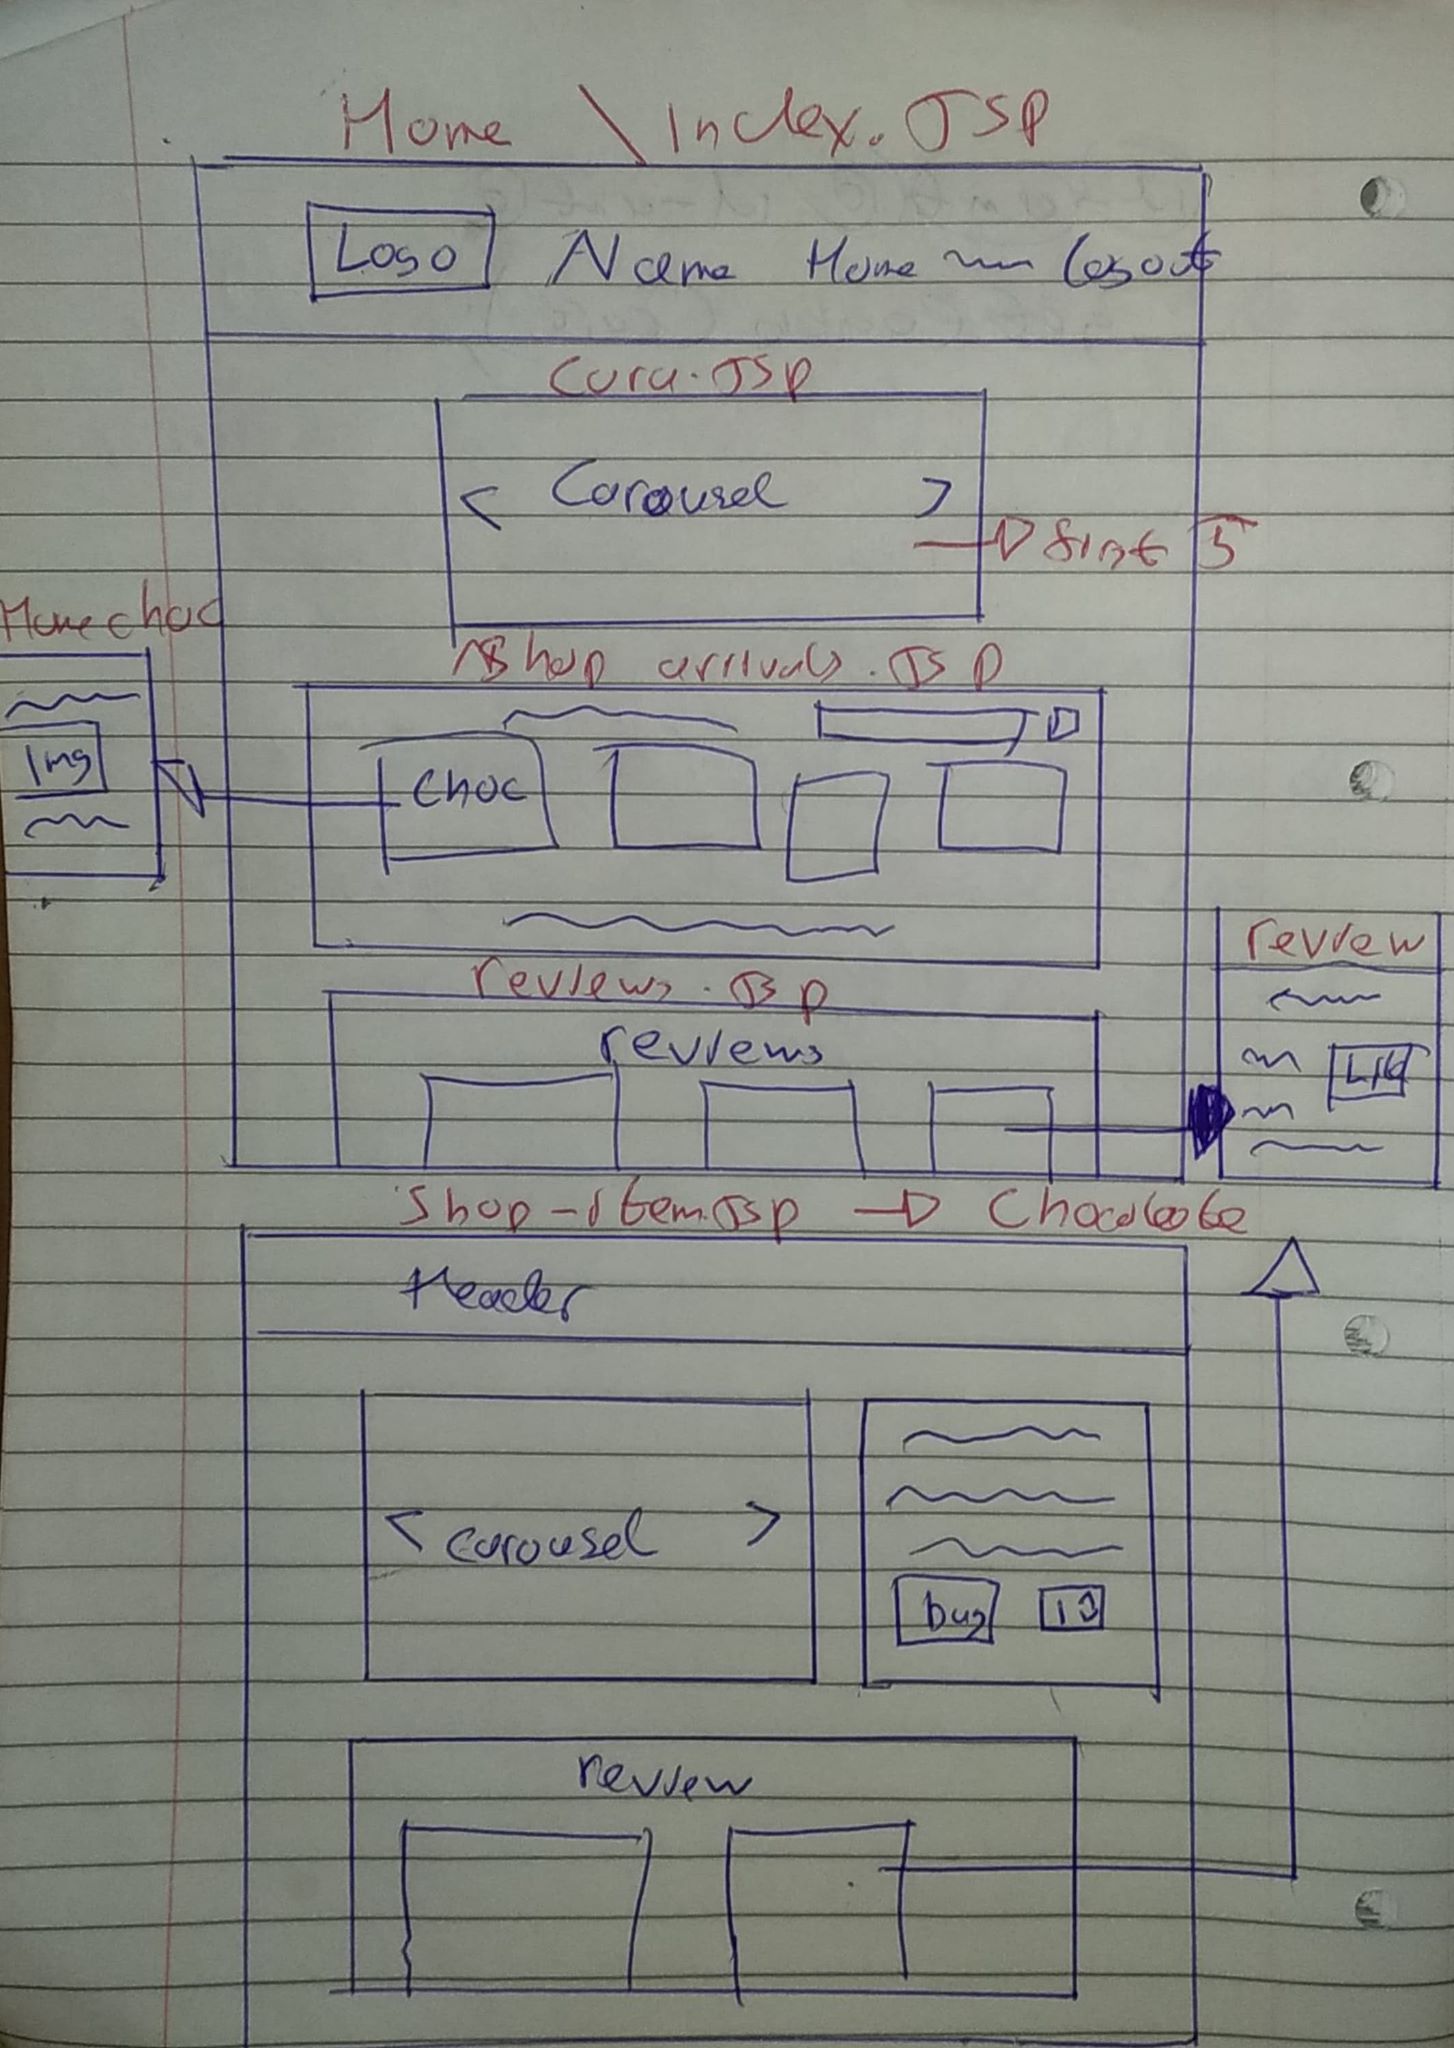 Home \ Index.JSP
Logo Name Home Logout
Caru.JSP
< Carousel >
first 5
Home choc
Shop arrivals.JSP
Img
choc
review
reviews.JSP
reviews
Shop-item.JSP → Chocolate
Header
< carousel >
buy
review